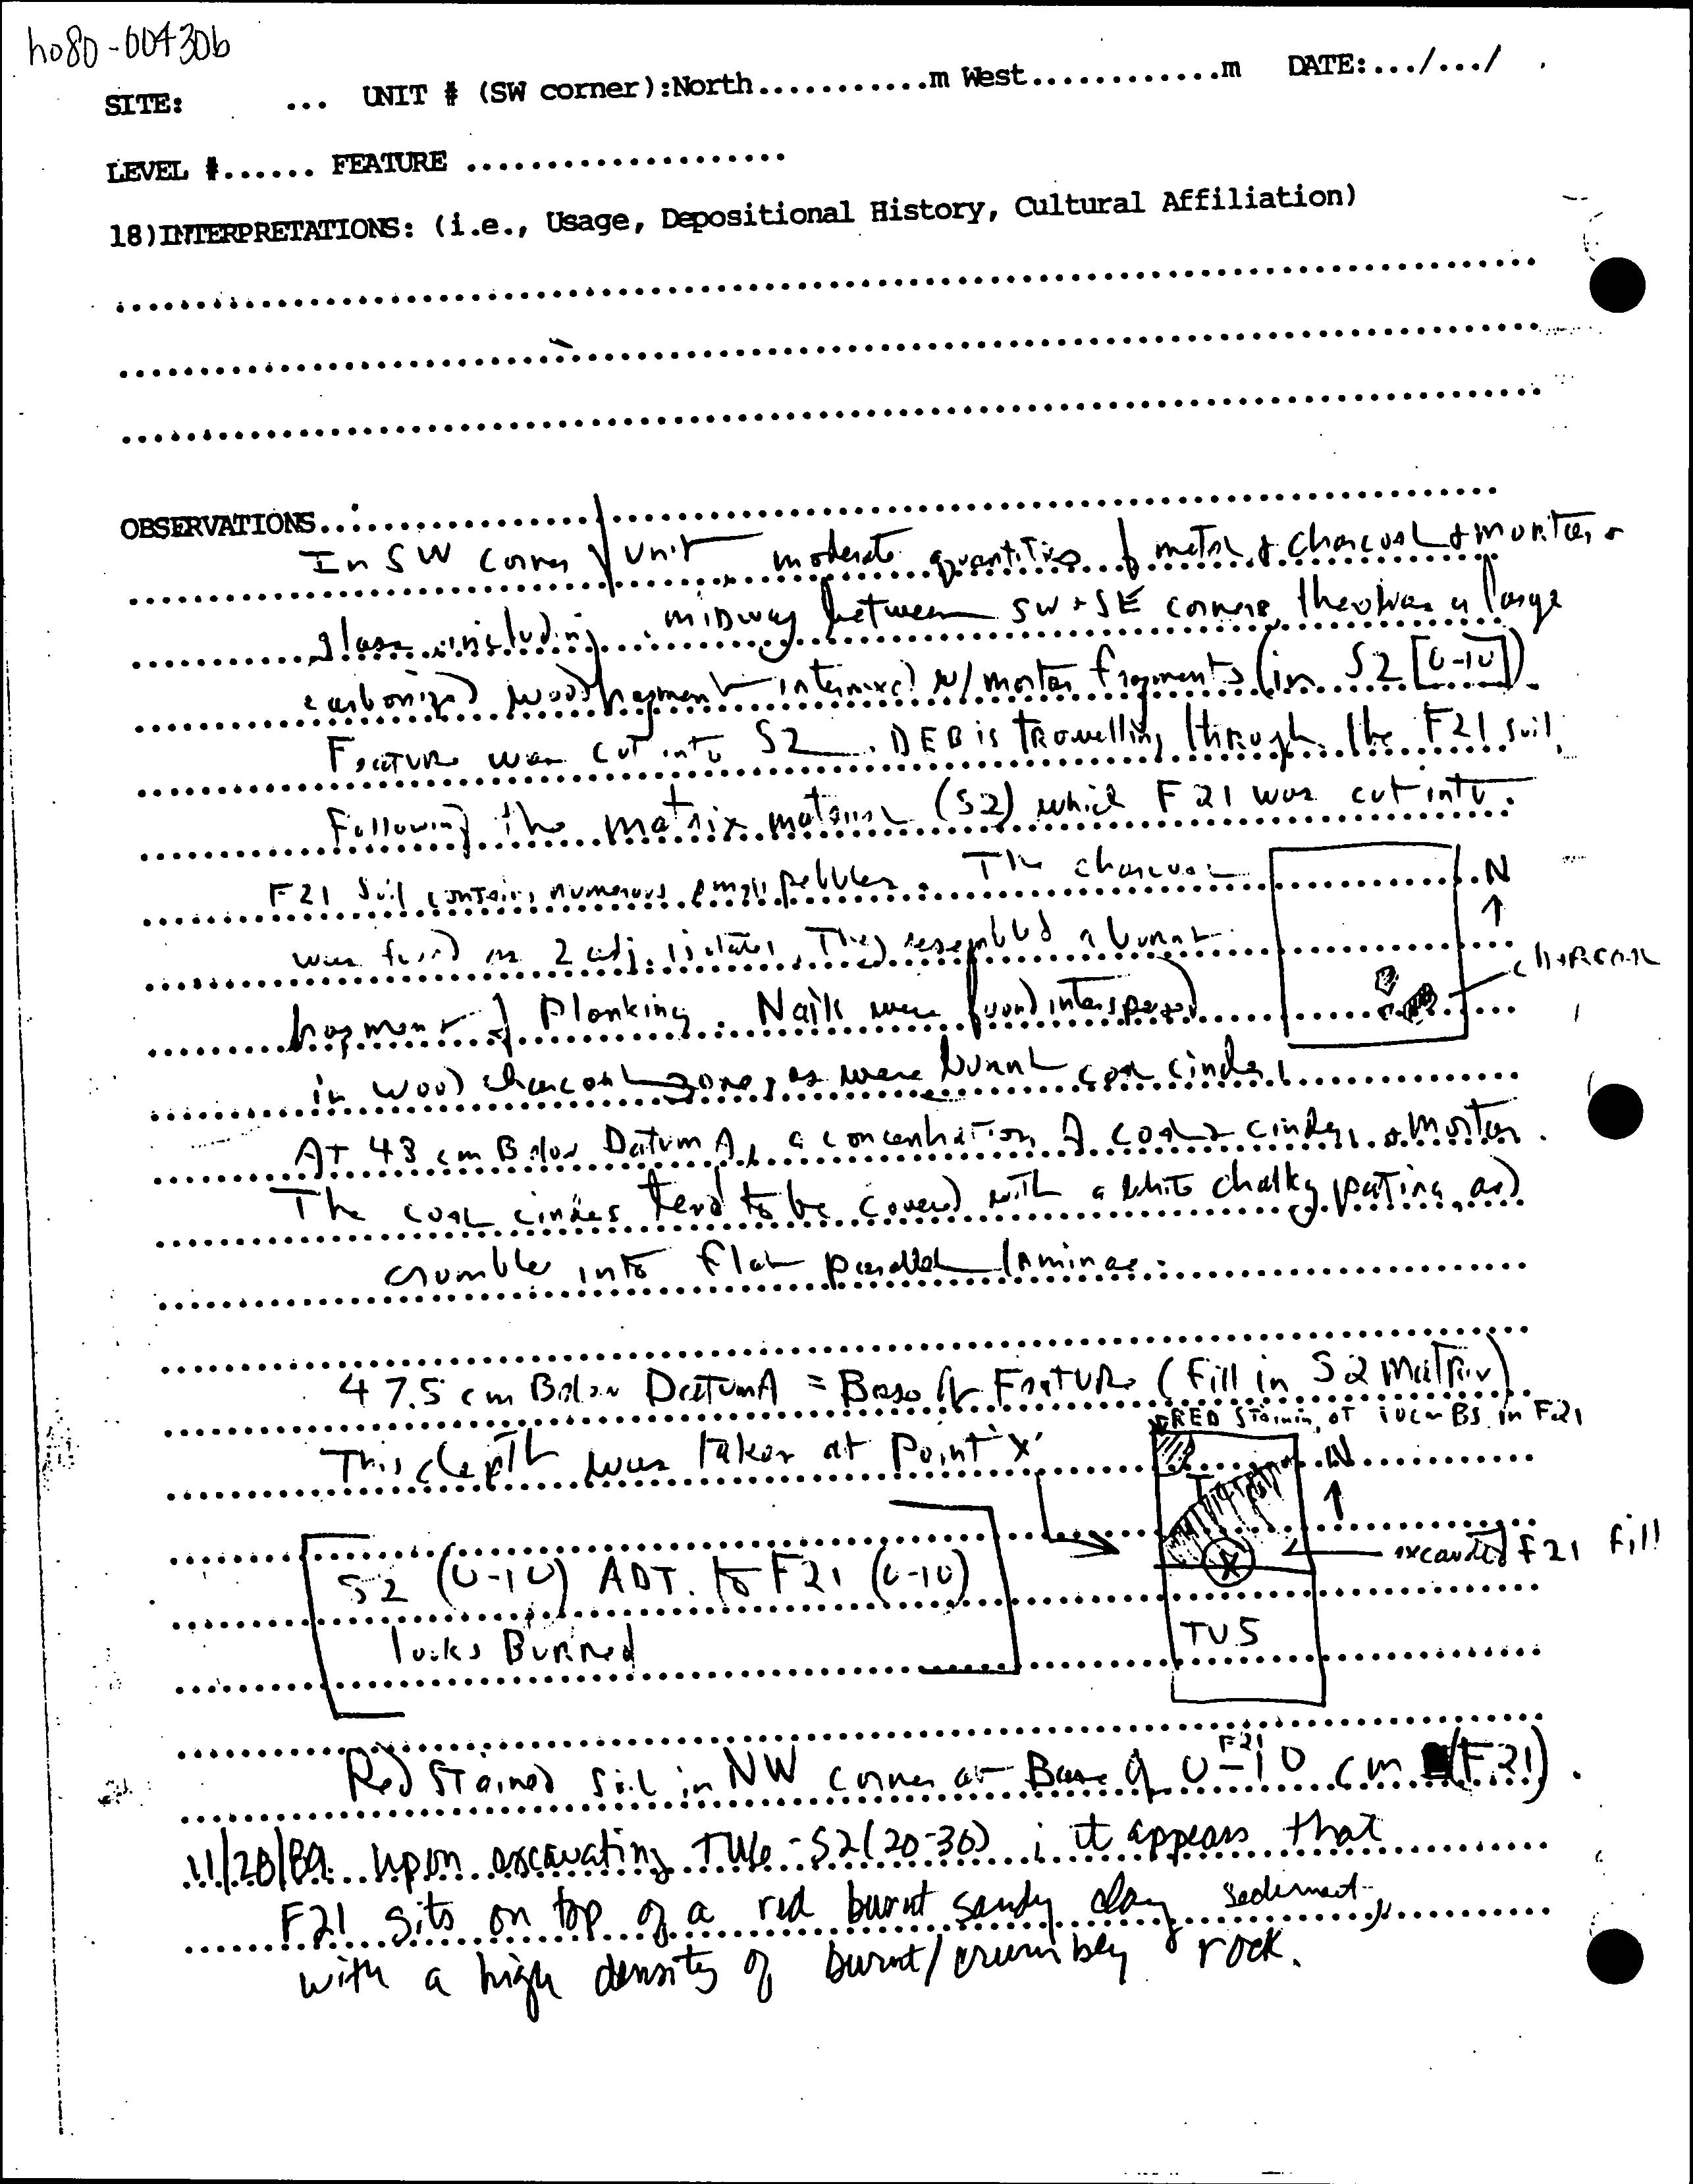 ho80-00430b
SITE: ... UNIT # (SW corner):North............m West.............m DATE:.../.../
LEVEL #...... FEATURE .....................
18)INTERPRETATIONS: (i.e., Usage, Depositional History, Cultural Affiliation)
OBSERVATIONS...
In SW corner of unit, moderate quantities of metal & charcoal & mortar &
glass including midway between SW + SE corners, there was a large
carbonized wood fragment intermixed w/ mortar fragments (in S2 [0-10]).
Feature was cut into S2. DEB is trowelling through the F21 soil
Following the matrix material (S2) which F21 was cut into.
F21 Soil contains numerous small pebbles. The charcoal
N
was found as 2 adj. isolates. They resembled a burnt
charcoal
fragment of Planking. Nails were found interspersed
in wood charcoal zone, as were burnt coal cinders.
At 43 cm Below Datum A, a concentration of coal & cinders & mortar.
The coal cinders tend to be covered with a white chalky patina and
crumble into flat parallel laminae.
47.5 cm Below Datum A = Base of Feature (Fill in S2 Matrix)
RED Staining at 10cm BS in F21
This depth was taken at Point 'X'
N
excavated F21 Fill
X
S2 (0-10) ADJ. to F21 (0-10)
looks Burned
TU5
Red Stained Soil in NW corner at Base of F21 0-10 cm (F21).
11/28/89. Upon excavating TU6-S2(20-30); it appears that
F21 sits on top of a red burnt sandy clay sediment
with a high density of burnt/crumbley rock.